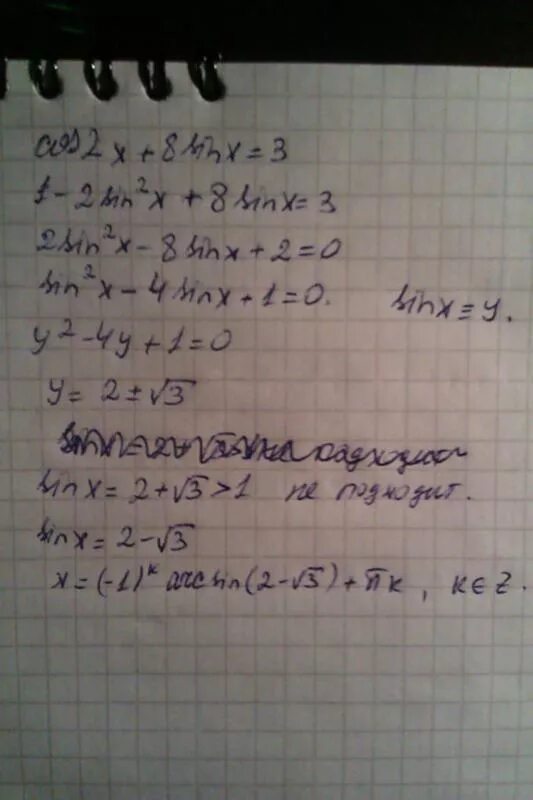 cos2x + 8sinx = 3
1 - 2sin²x + 8sinx = 3
2sin²x - 8sinx + 2 = 0
sin²x - 4sinx + 1 = 0. sinx = y.
y² - 4y + 1 = 0
y = 2 ± √3
sinx = 2 + √3 > 1 не подходит.
sinx = 2 - √3
x = (-1)ᵏ arcsin(2 - √3) + πk, k ∈ Z.